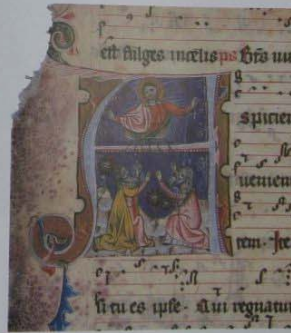 est fulges in celis ps
spicien
uenien
tem. Ite
si tu es ipse. Qui regnatur